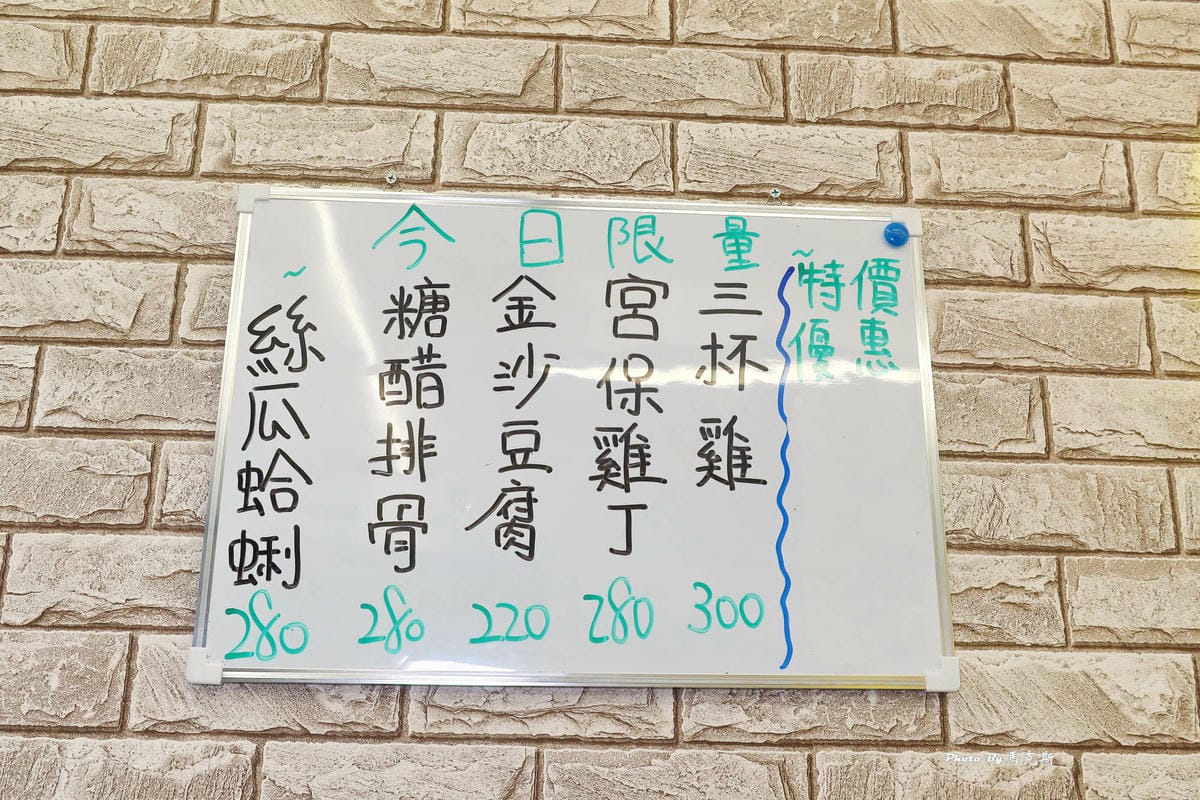 ~今日限量~
三杯雞 300
宮保雞丁 280
金沙豆腐 220
糖醋排骨 280
絲瓜蛤蜊 280
特價
優惠
Photo By 馬克斯